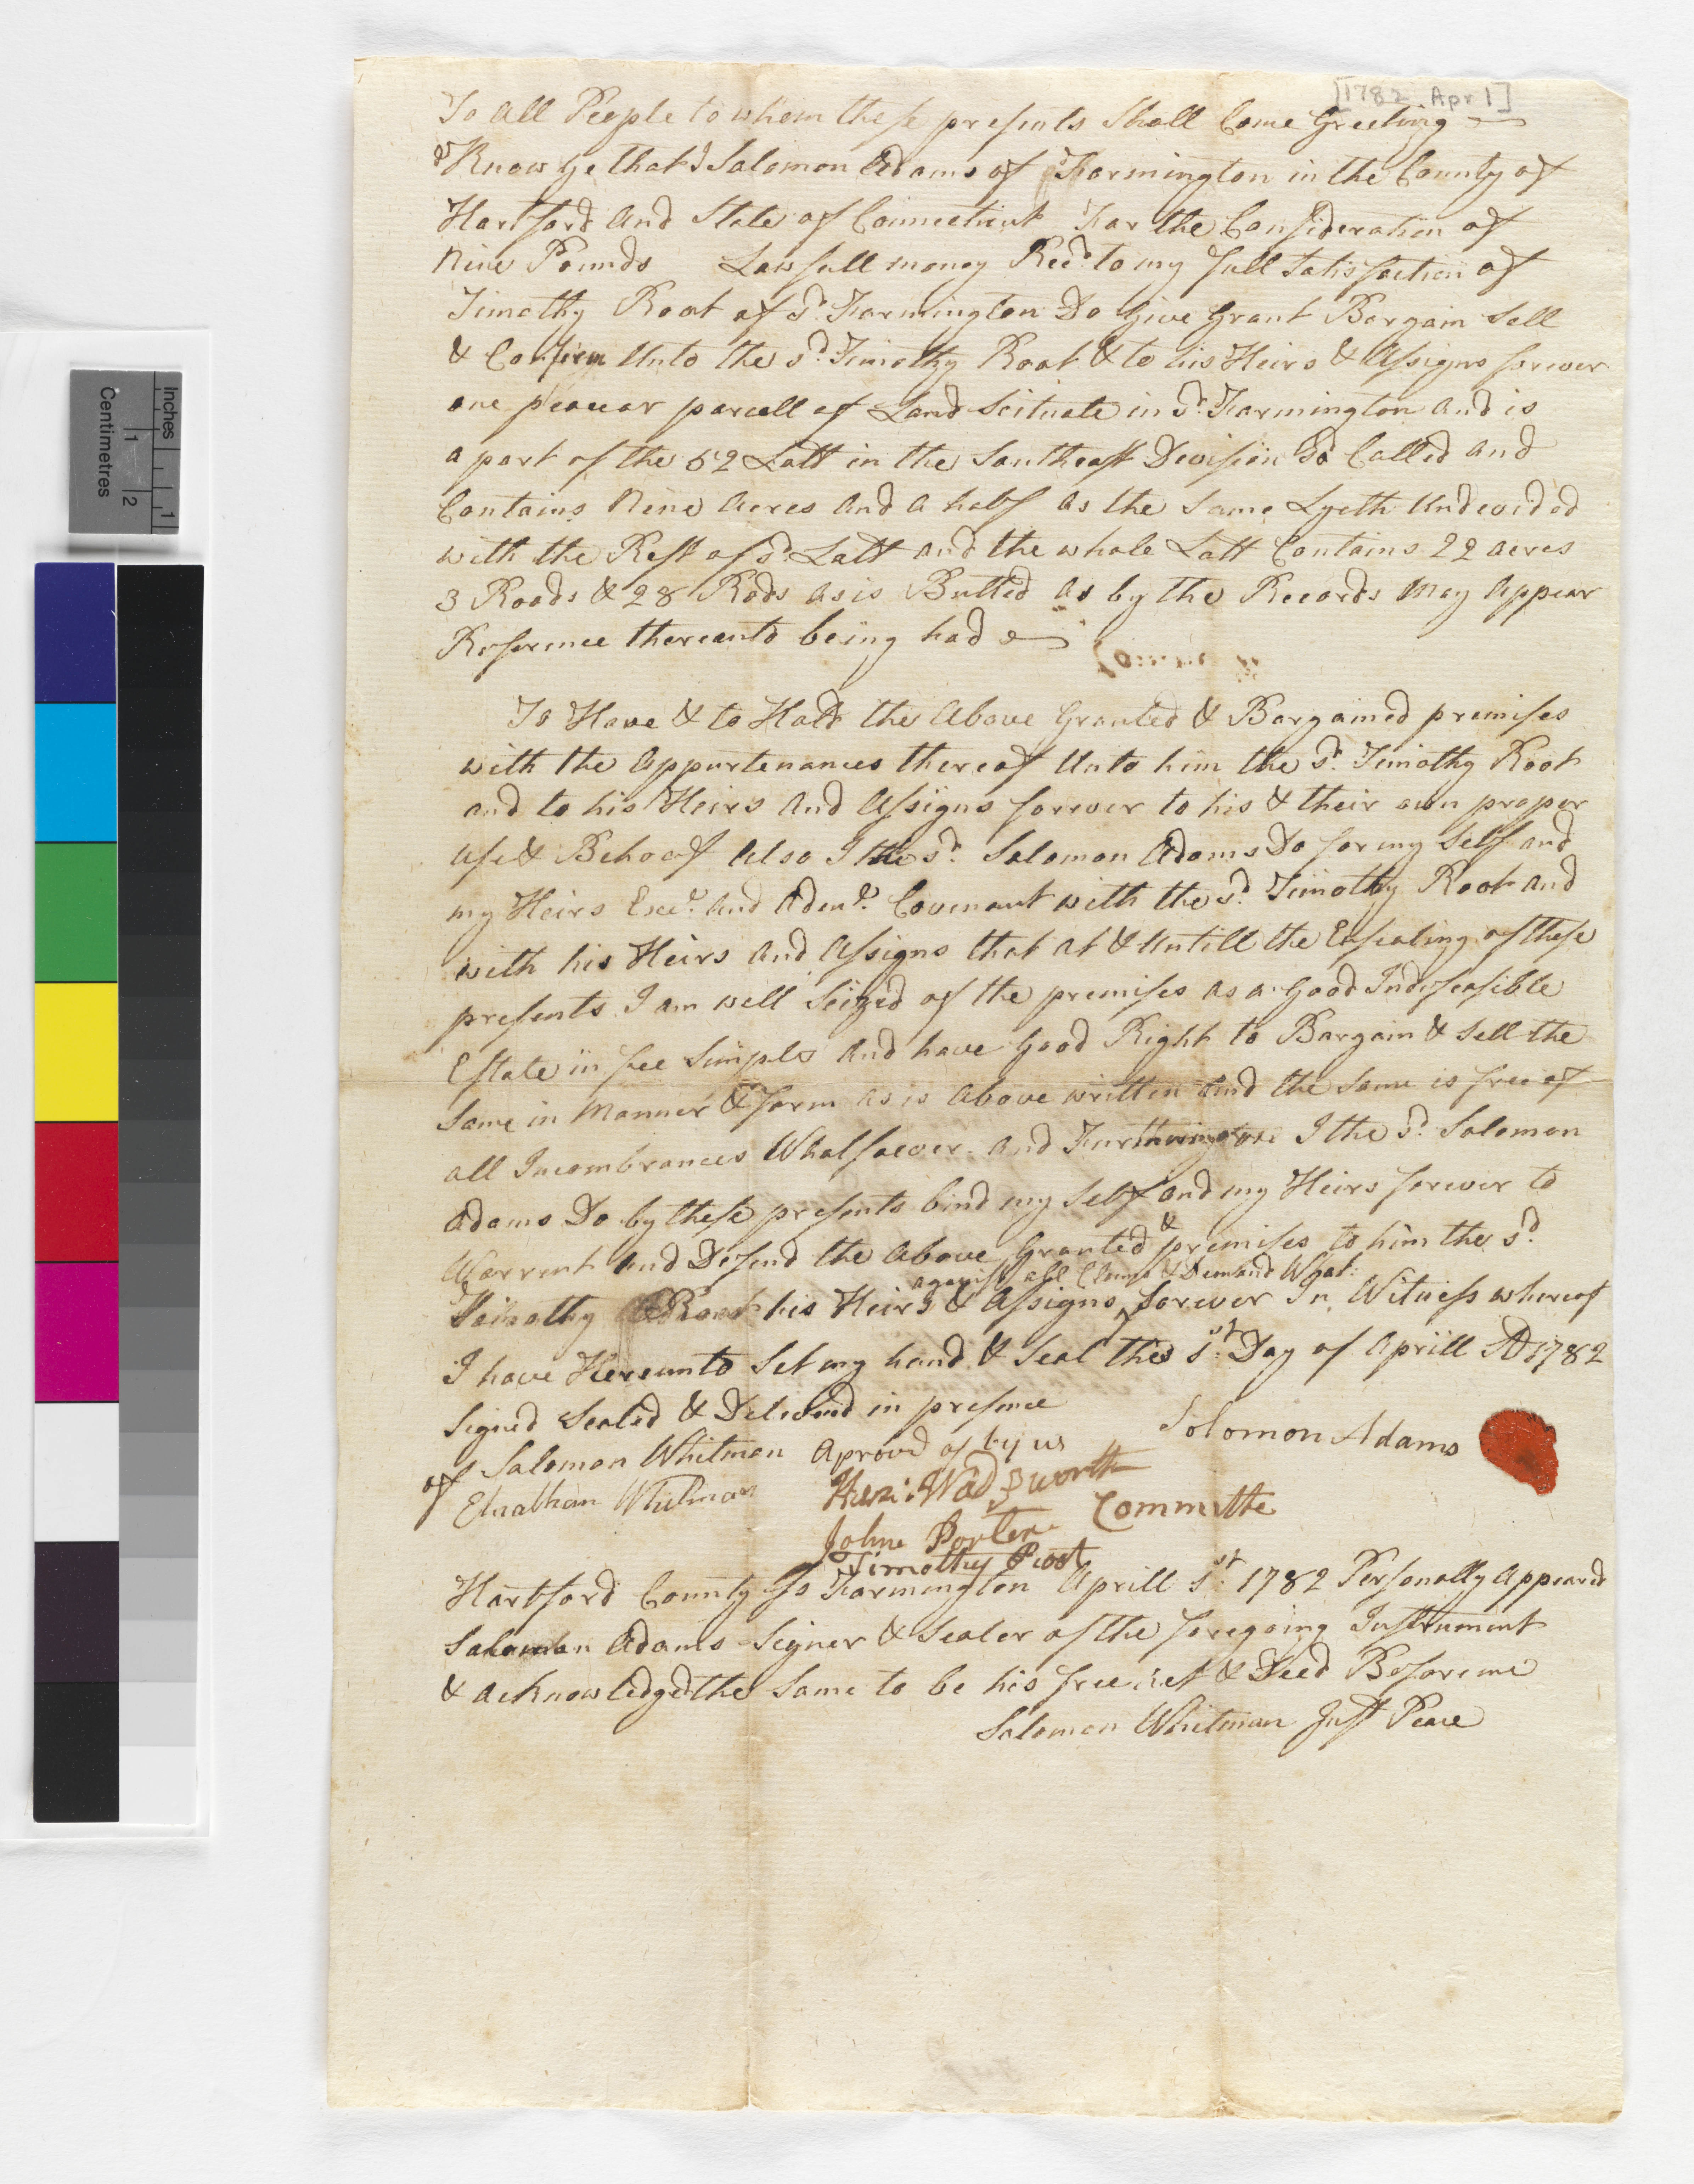 [1782 Apr 1]
To all People to whom these presents Shall Come Greeting
Know ye that I Solomon Adams of Farmington in the County of
Hartford and State of Connecticut For the Consideration of
Nine Pounds Lawfull money Recd. to my full Satisfaction of
Timothy Root of sd. Farmington Do Give Grant Bargain Sell
& Confirm Unto the sd. Timothy Root & to his Heirs & Assigns forever
one peace or parcell of Land Scituate in sd. Farmington and is
a part of the 52 Lott in the Southeast Devision So Called and
Contains Nine acres and a half as the Same Lyeth Undevided
with the Rest of sd. Lott and the whole Lott Contains 22 acres
3 Roods & 28 Rods as is Butted as by the Records May Appear
Reference thereunto being had
To Have & to Hold the Above Granted & Bargained premises
with the Appurtenances thereof Unto him the sd. Timothy Root
and to his Heirs and Assigns forever to his & their own proper
use & Behoof Also I the sd. Solomon Adams Do for my Self and
my Heirs Execr. and Admr. Covenant with the sd. Timothy Root and
with his Heirs and Assigns that at & Untill the Ensealing of these
presents I am well Seized of the premises as a Good Indefeasible
Estate in fee Simple and have Good Right to Bargain & Sell the
Same in Manner & form as is above written and the Same is free of
all Incombrances Whatsoever. and Furthermore I the sd. Solomon
Adams Do by these presents bind my Self and my Heirs forever to
Warrent and Defend the above Granted & premises to him the sd.
against all Claims & Demand What:
Timothy Root his Heirs & Assigns forever In Witness whereof
I have Hereunto Set my hand & Seal this 1st. Day of Aprill AD 1782
Signed Sealed & Deliverd in presence
Solomon Adams
of Solomon Whitman Aprovd of by us
Elnathan Whitman Hezi: Wadsworth
John Porter Committe
Timothy Root
Hartford County Ss Farmington Aprill 1st. 1782 Personally Appeared
Solomon Adams Signer & Sealer of the foregoing Instrument
& acknowledged the Same to be his free act & Deed Before me
Solomon Whitman Just Peace